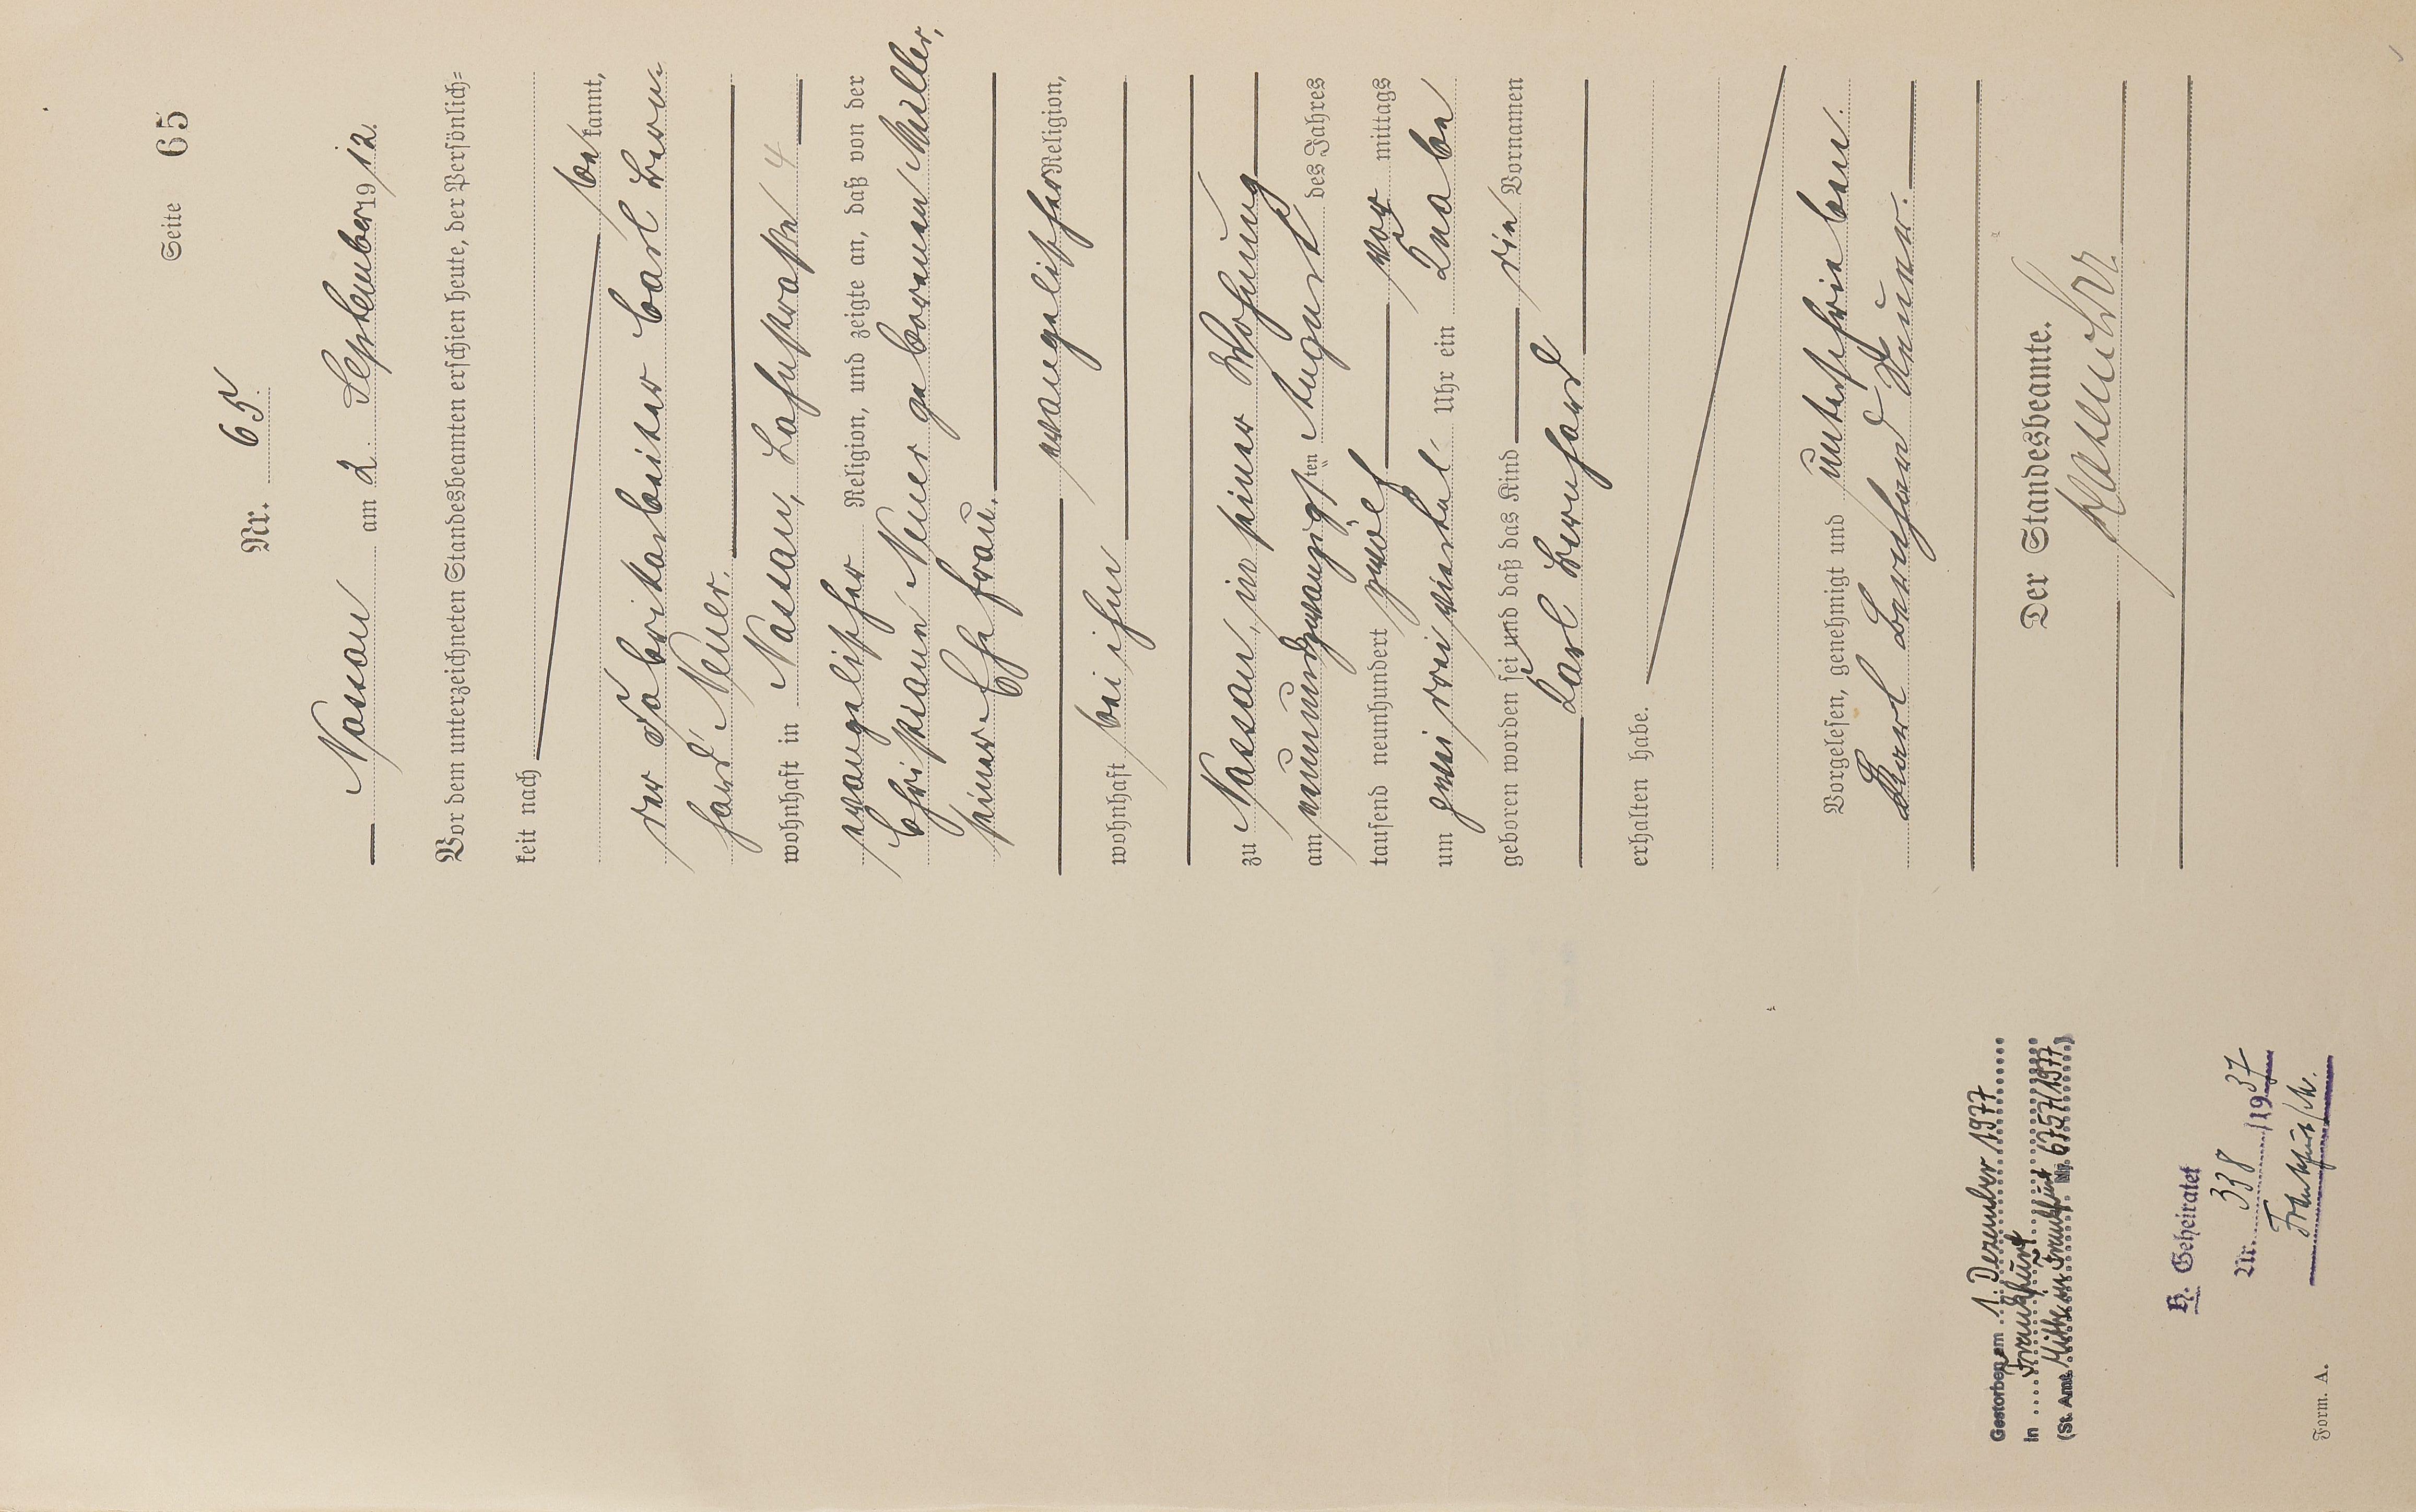 Seite 65
Nr. 65
Nassau am 2. September 1912.
Vor dem unterzeichneten Standesbeamten erschien heute, der Persönlich=
keit nach
bekannt,
der Fabrikarbeiter Carl Bern=
hard Neuer
wohnhaft in Nassau, Lahnstraße 4
evangelischer Religion, und zeigte an, daß von der
Christiane Neuer geborenen Müller,
seiner Ehefrau,
evangelischer Religion,
wohnhaft bei ihm
zu Nassau, in seiner Wohnung
am neunundzwanzigsten August des Jahres
tausend neunhundert zwölf vormittags
um zwei drei viertel Uhr ein Knabe
geboren worden sei und daß das Kind die Vornamen
Karl Bernhard
erhalten habe.
Vorgelesen, genehmigt und unterschrieben.
Karl Bernhard Neuer.
Der Standesbeamte.
Gestorben am 1. Dezember 1977
in Frankfurt
(St. Amt Mitte in Frankfurt Nr. 6757/1977)
H. Geheiratet
Nr. 338/1937
Frankfurt/M.
Form. A.